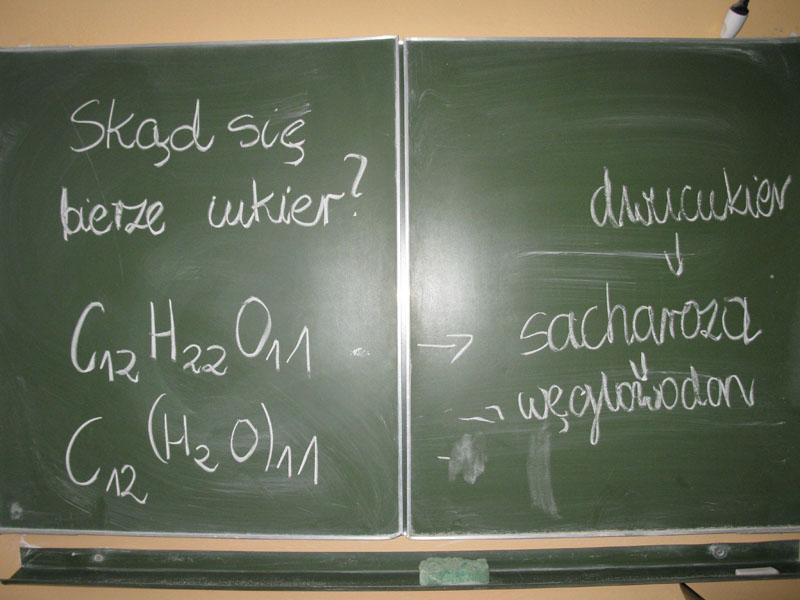 Skąd się
bierze cukier?
C₁₂H₂₂O₁₁
C₁₂(H₂O)₁₁
dwucukier
↓
→ sacharoza
↓
→ węglowodan